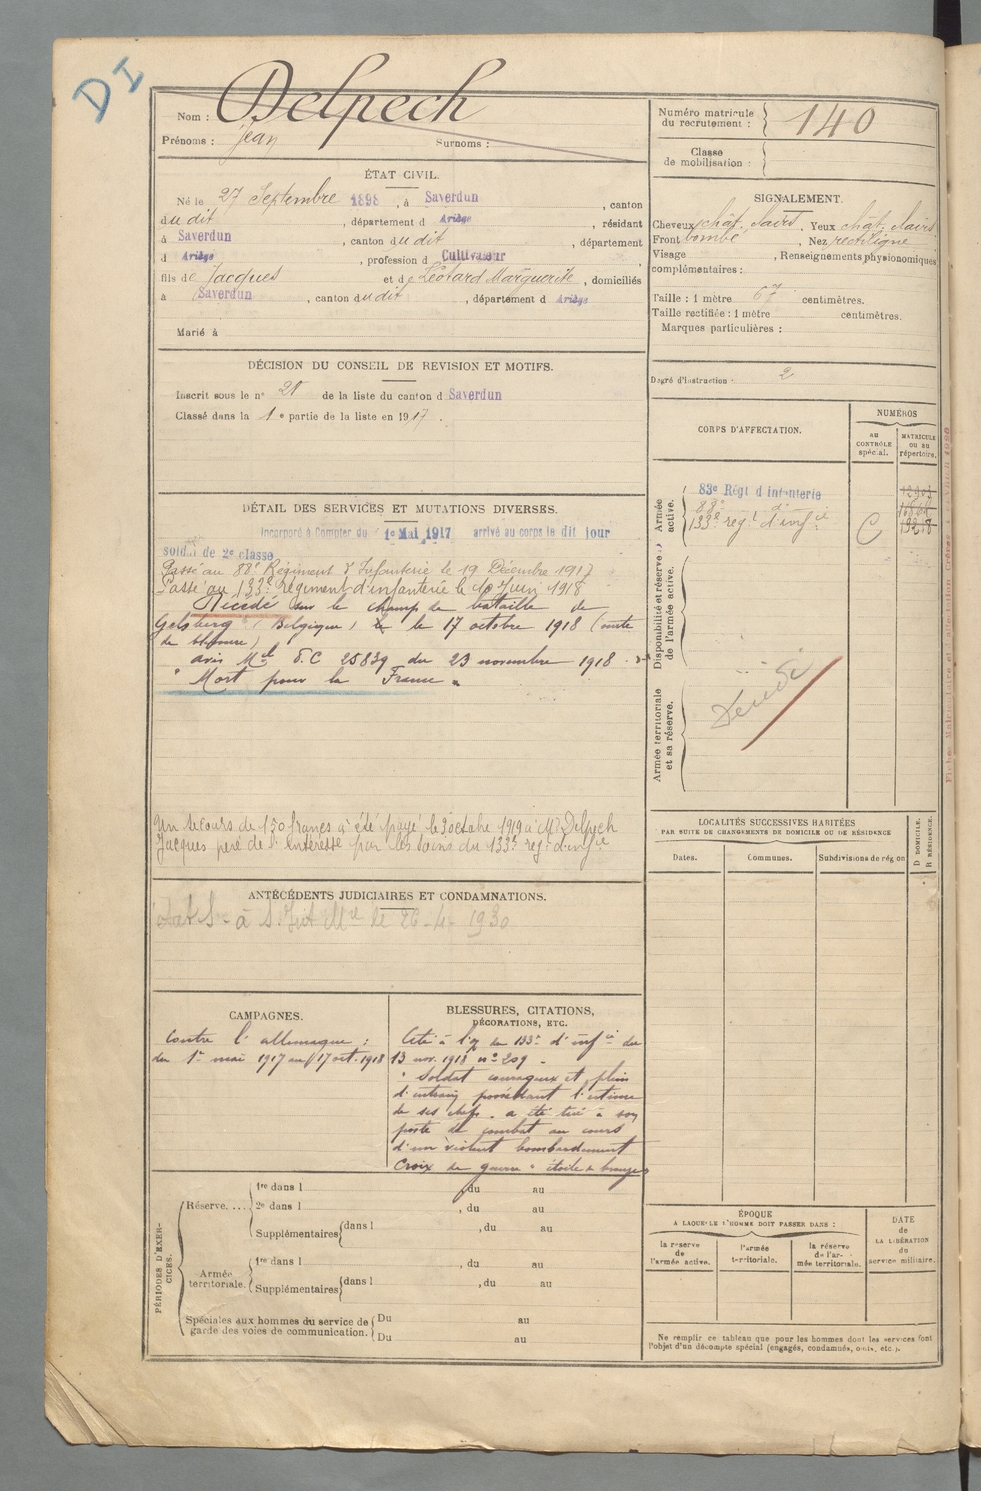 DI
Nom : Delpech
Prénoms : Jean Surnoms :
Numéro matricule du recrutement : 140
Classe de mobilisation :
ÉTAT CIVIL.
Né le 27 Septembre 1898, à Saverdun, canton
dudit, département d Ariège, résidant
à Saverdun, canton dudit, département
d Ariège, profession d Cultivateur
fils de Jacques et de Léotard Marguerite, domiciliés
à Saverdun, canton dudit, département d Ariège
Marié à
SIGNALEMENT.
Cheveux chât. clairs, Yeux chât. clairs
Front bombé, Nez rectiligne
Visage , Renseignements physionomiques
complémentaires :
Taille : 1 mètre 67 centimètres.
Taille rectifiée : 1 mètre centimètres.
Marques particulières :
Degré d'instruction : 2
DÉCISION DU CONSEIL DE REVISION ET MOTIFS.
Inscrit sous le n° 21 de la liste du canton d Saverdun
Classé dans la 1e partie de la liste en 1917.
CORPS D'AFFECTATION.
NUMÉROS
AU CONTRÔLE spécial.
MATRICULE ou au répertoire.
Armée active.
83e Régt d infanterie
88e d°
133e regt d'infie
C
Disponibilité et réserve de l'armée active.
Armée territoriale et sa réserve.
Décédé
DÉTAIL DES SERVICES ET MUTATIONS DIVERSES.
Incorporé à Compter du 1e Mai 1917 arrivé au corps le dit jour
soldat de 2e classe
Passé au 88e Régiment d'Infanterie le 19 Décembre 1917
Passé au 133e régiment d'infanterie le 10 Juin 1918
Décédé sur le champ de bataille de
Gelsberg (Belgique) le 17 octobre 1918 (suite
de blessure)
avis Mel S.C 25839 du 23 novembre 1918.
" Mort pour la France "
Un secours de 150 francs a été payé le 3 octobre 1919 à Mr Delpech
Jacques père de l'intéressé par les soins du 133e regt d'infie
LOCALITÉS SUCCESSIVES HABITÉES
PAR SUITE DE CHANGEMENTS DE DOMICILE OU DE RÉSIDENCE
Dates. Communes. Subdivisions de région
D DOMICILE.
R RÉSIDENCE.
ANTÉCÉDENTS JUDICIAIRES ET CONDAMNATIONS.
CAMPAGNES.
Contre l'allemagne :
du 1er mai 1917 au 17 oct. 1918
BLESSURES, CITATIONS,
DÉCORATIONS, ETC.
Cité à l'o/ du 133e d'infie du
13 nov. 1918 n° 209 -
" Soldat courageux et plein
d'entrain possédant l'estime
de ses chefs. a été tué à son
poste de combat au cours
d'un violent bombardement
Croix de guerre " étoile de bronze
PÉRIODES D'EXERCICES.
Réserve.... 1re dans l , du au
2e dans l , du au
Supplémentaires dans l , du au
Armée territoriale. 1re dans l , du au
Supplémentaires dans l , du au
Spéciales aux hommes du service de Du au
garde des voies de communication. Du au
ÉPOQUE
A LAQUELLE L'HOMME DOIT PASSER DANS :
la réserve de l'armée active.
l'armée territoriale.
la réserve de l'armée territoriale.
DATE de LA LIBÉRATION du service militaire.
Ne remplir ce tableau que pour les hommes dont les services font
l'objet d'un décompte spécial (engagés, condamnés, omis, etc.).